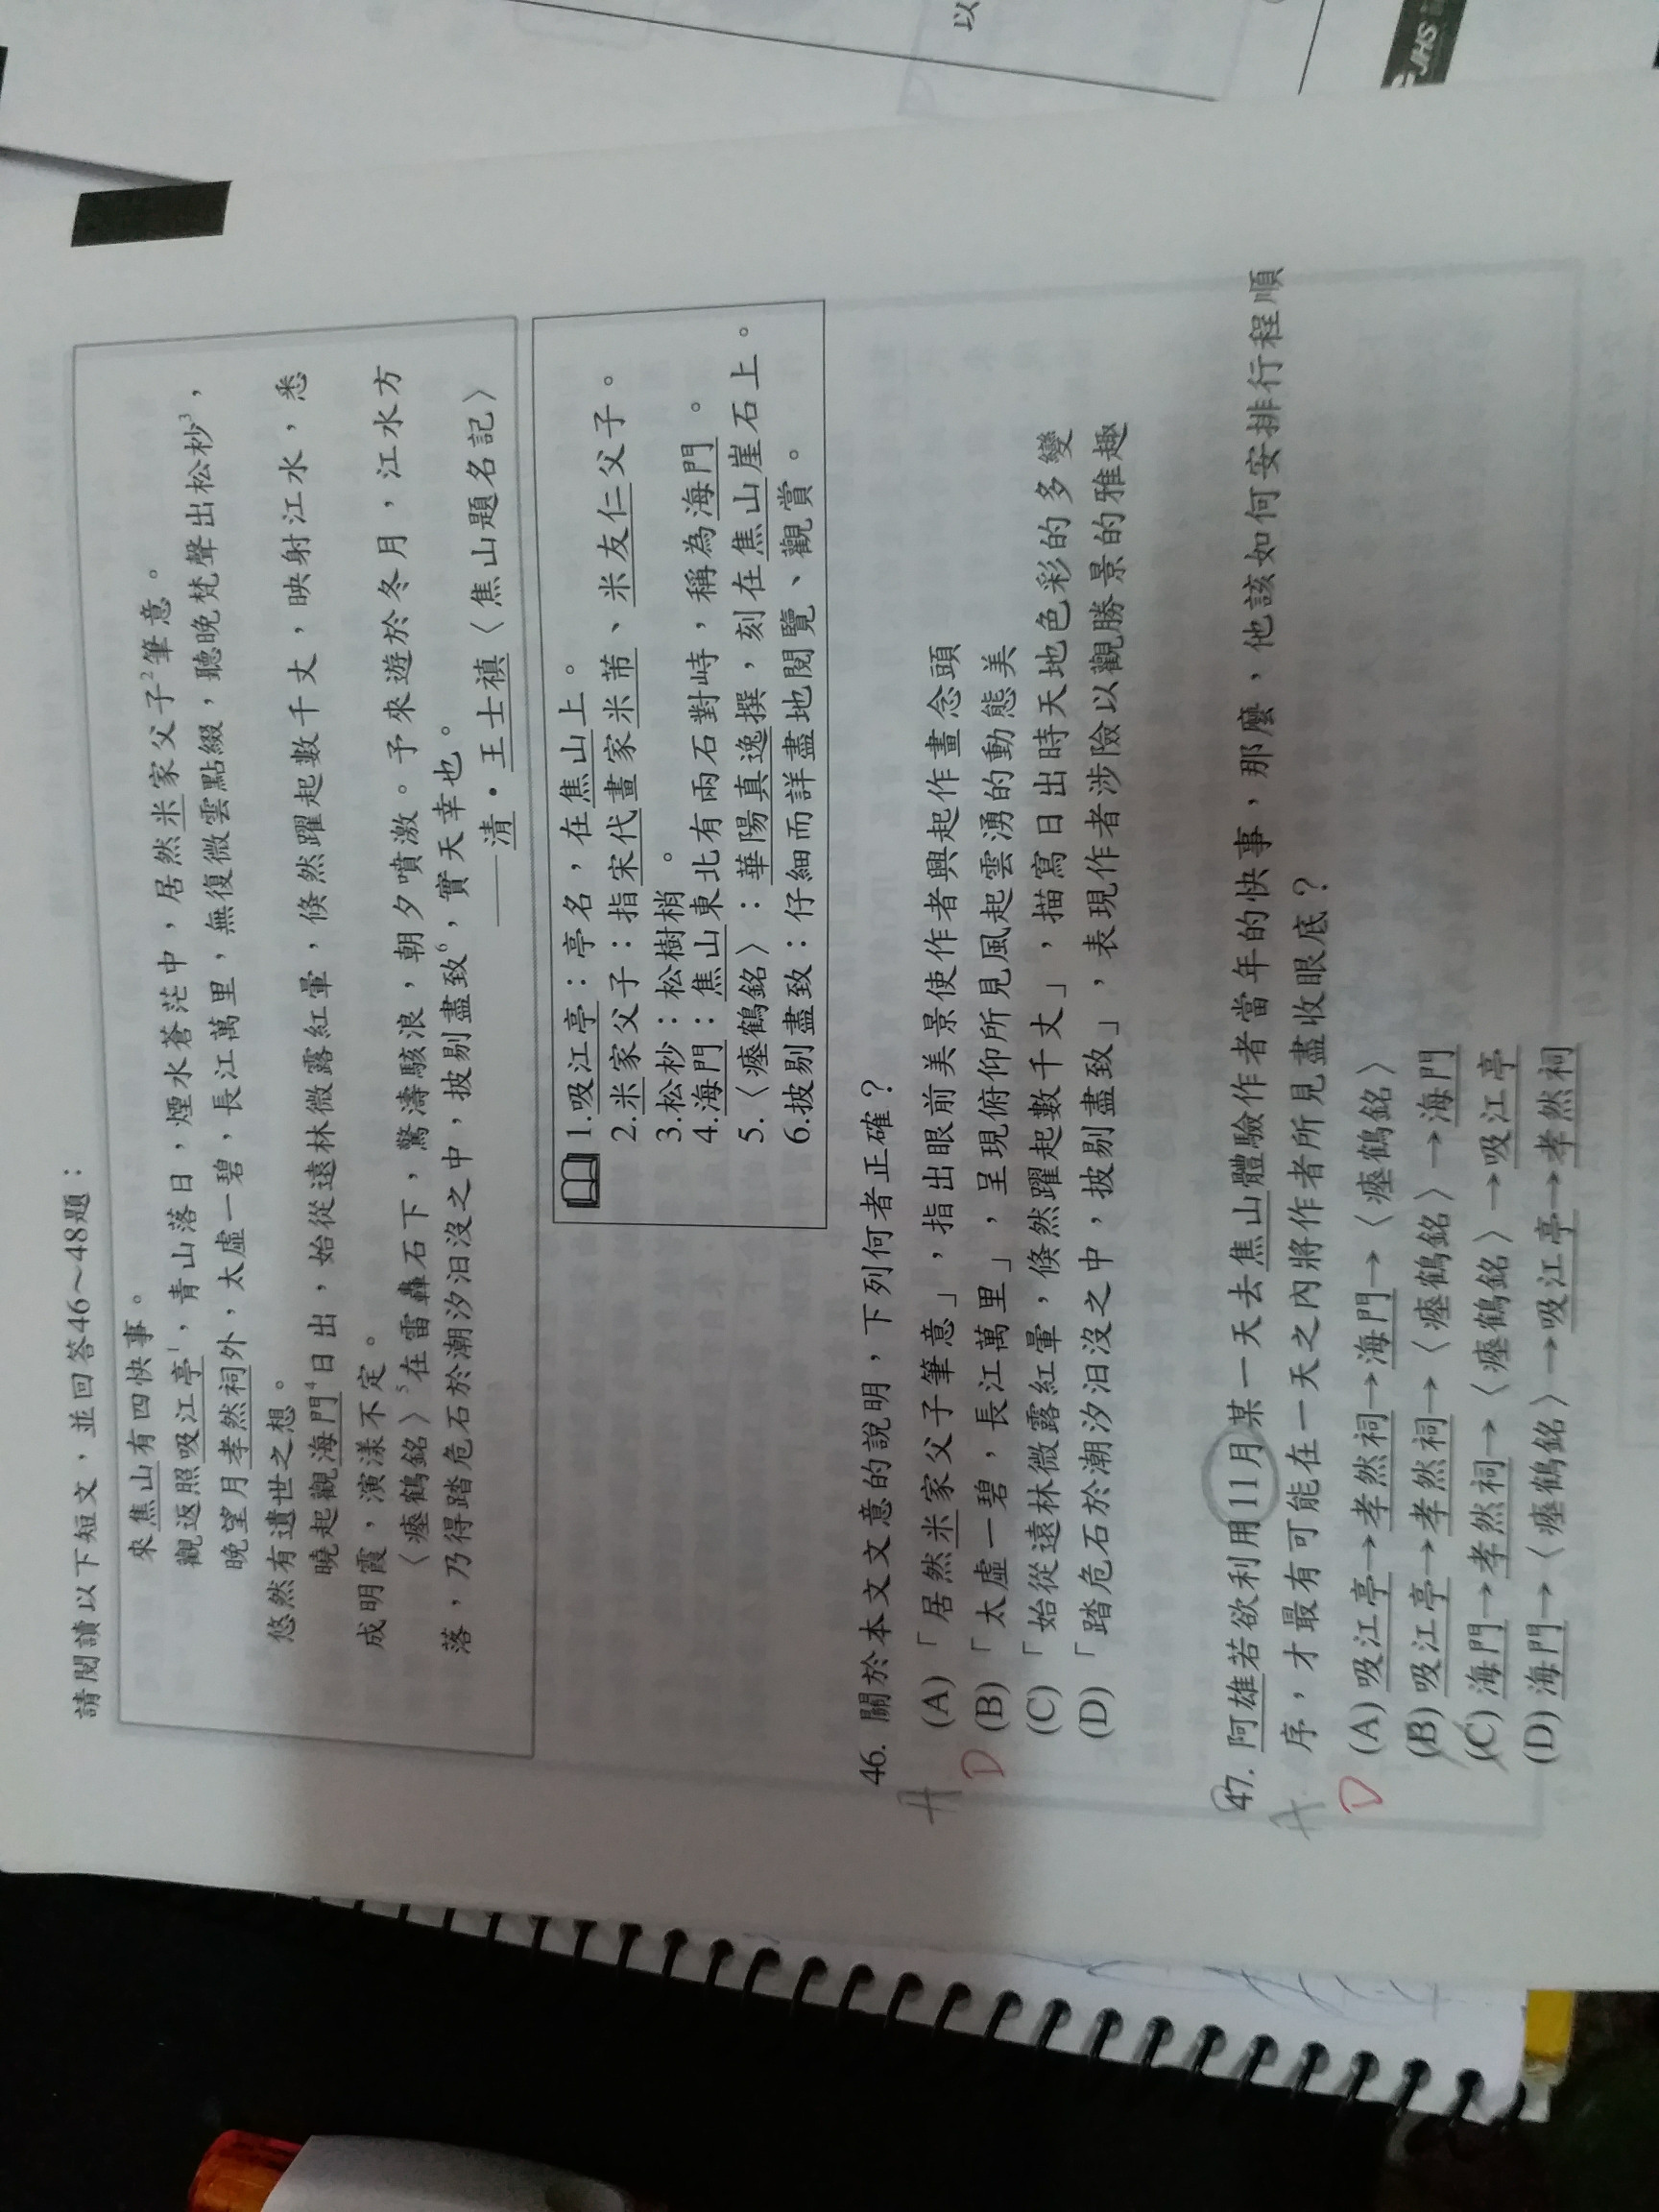 請閱讀以下短文，並回答46～48題：
來焦山有四快事。
觀返照吸江亭1，青山落日，煙水蒼茫中，居然米家父子2筆意。
晚望月孝然祠外，太虛一碧，長江萬里，無復微雲點綴，聽晚梵聲出松杪3，
悠然有遺世之想。
曉起觀海門4日出，始從遠林微露紅暈，倏然躍起數千丈，映射江水，悉
成明霞，演漾不定。
〈瘞鶴銘〉5在雷轟石下，驚濤駭浪，朝夕噴激。予來遊於冬月，江水方
落，乃得踏危石於潮汐汨沒之中，披剔盡致6，實天幸也。
——清・王士禛〈焦山題名記〉
1.吸江亭：亭名，在焦山上。
2.米家父子：指宋代畫家米芾、米友仁父子。
3.松杪：松樹梢。
4.海門：焦山東北有兩石對峙，稱為海門。
5.〈瘞鶴銘〉：華陽真逸撰，刻在焦山崖石上。
6.披剔盡致：仔細而詳盡地閱覽、觀賞。
46. 關於本文文意的說明，下列何者正確？
A
(A)「居然米家父子筆意」，指出眼前美景使作者興起作畫念頭
D
(B)「太虛一碧，長江萬里」，呈現俯仰所見風起雲湧的動態美
(C)「始從遠林微露紅暈，倏然躍起數千丈」，描寫日出時天地色彩的多變
(D)「踏危石於潮汐汨沒之中，披剔盡致」，表現作者涉險以觀勝景的雅趣
47. 阿雄若欲利用11月某一天去焦山體驗作者當年的快事，那麼，他該如何安排行程順
A
序，才最有可能在一天之內將作者所見盡收眼底？
D
(A)吸江亭→孝然祠→海門→〈瘞鶴銘〉
(B)吸江亭→孝然祠→〈瘞鶴銘〉→海門
(C)海門→孝然祠→〈瘞鶴銘〉→吸江亭
(D)海門→〈瘞鶴銘〉→吸江亭→孝然祠
以
JHS